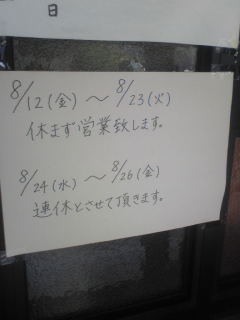 日
8/12(金)～8/23(火)
休まず営業致します。
8/24(水)～8/26(金)
連休とさせて頂きます。